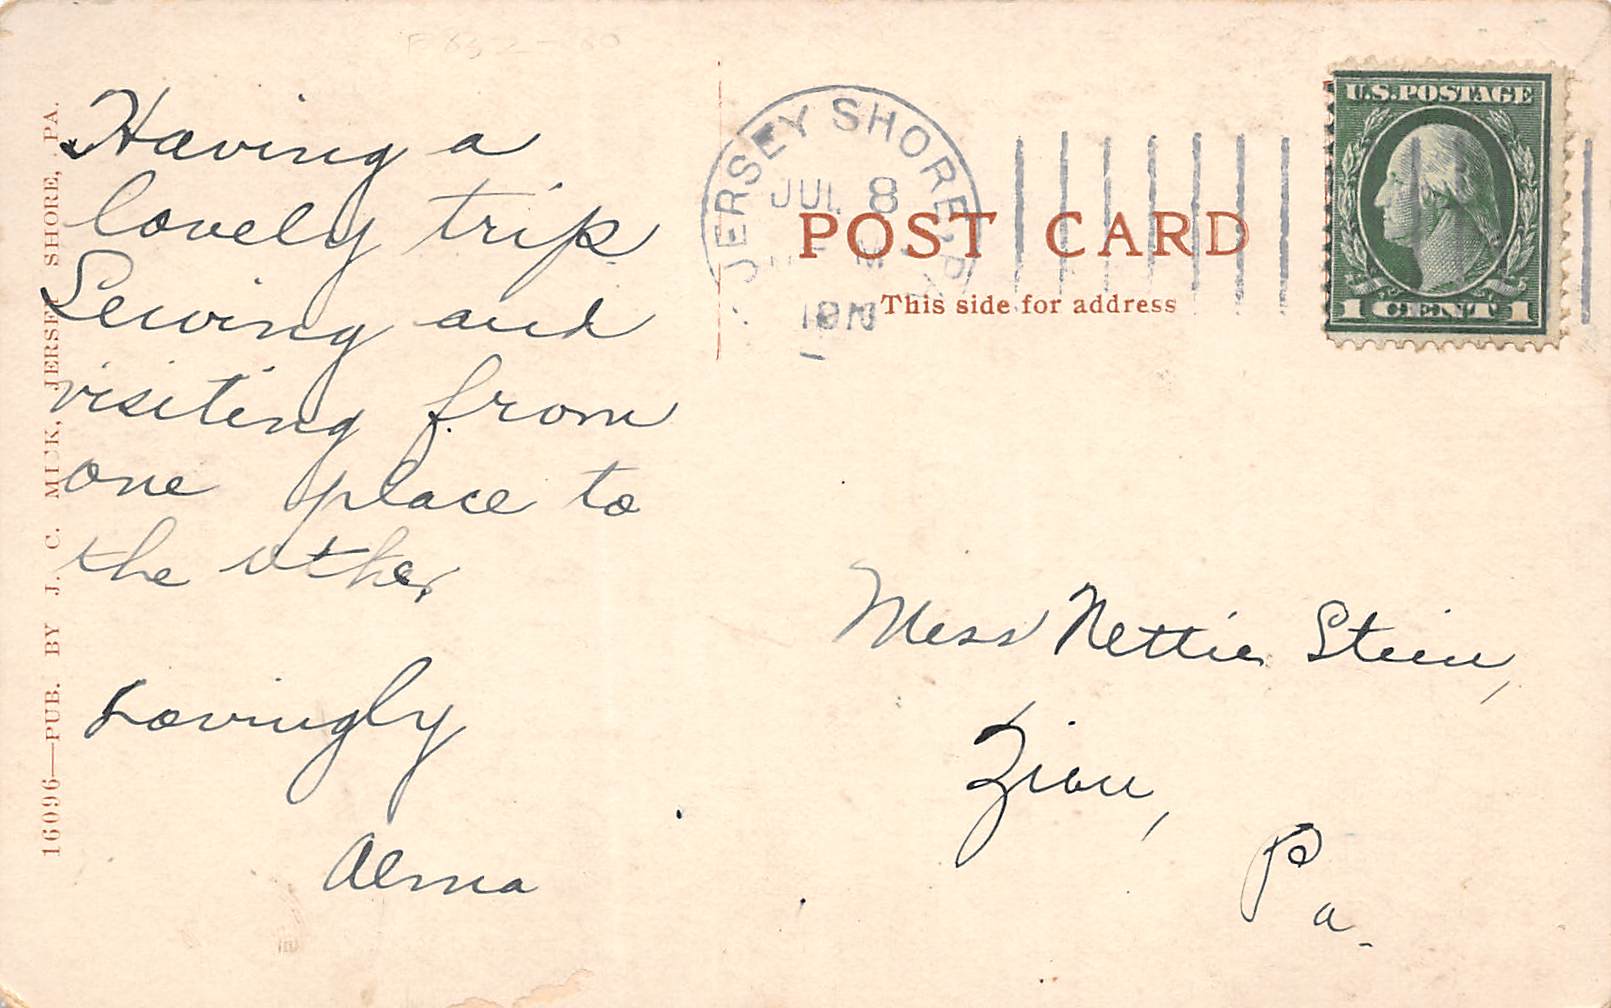 Having a
lovely trip
Sewing and
visiting from
one place to
the other.
Lovingly
Alma
16096—PUB. BY J. C. MICK, JERSEY SHORE, PA.
JERSEY SHORE, PA.
JUL 8
M
POST CARD
This side for address
U.S.POSTAGE
1 CENT 1
Miss Nettie Stein,
Zion,
Pa.